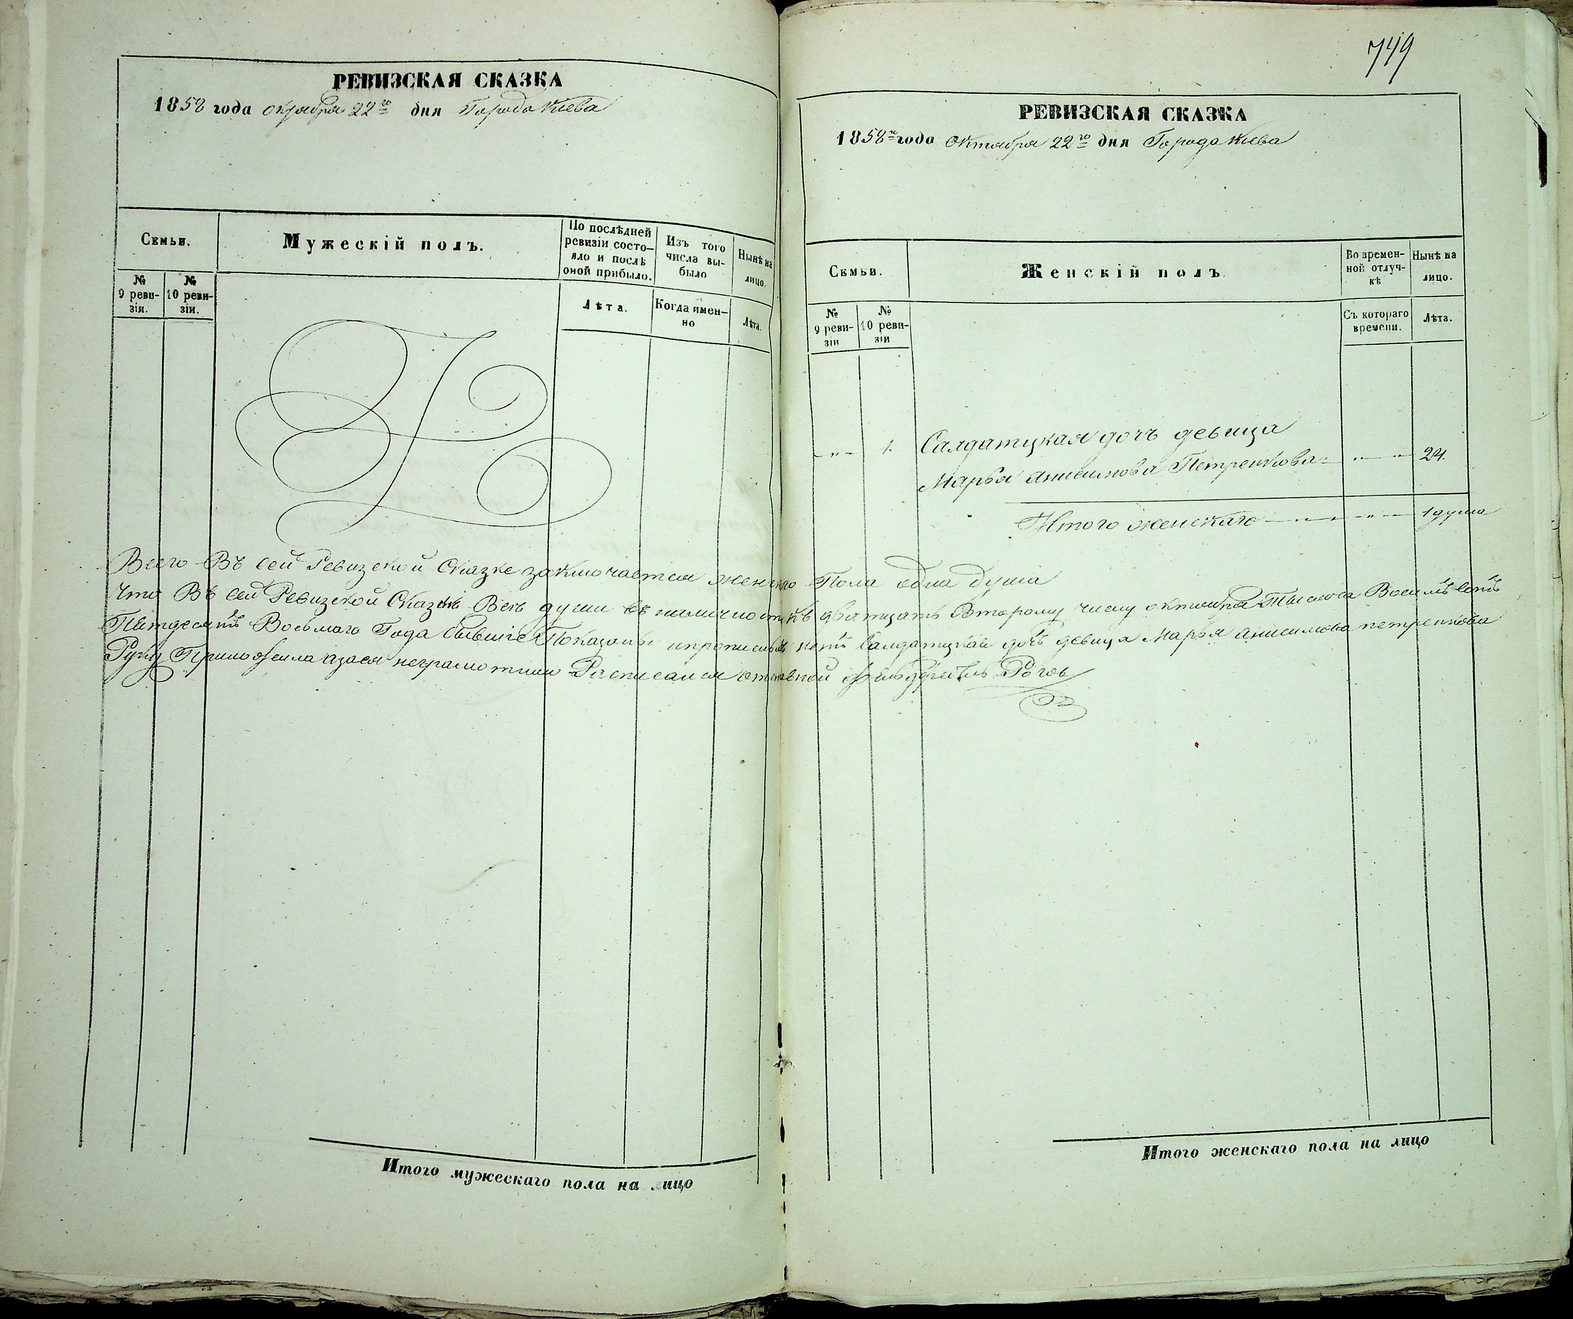 749
РЕВИЗСКАЯ СКАЗКА
1858 года октября 22го дня Города Киева
Семьи.
Мужескій полъ.
По послѣдней ревизіи состо-
яло и послѣ оной прибыло.
Изъ того числа вы-
было
Нынѣ на лицо.
№ 9 реви-
зіи.
№ 10 реви-
зіи.
Лѣта.
Когда имен-
но
Лѣта.
Итого мужескаго пола на лицо
РЕВИЗСКАЯ СКАЗКА
1858го года Октября 22го дня Города Киева
Семьи.
Женскій полъ
Во времен-
ной отлуч-
кѣ
Нынѣ на лицо.
№ 9 реви-
зіи
№ 10 реви-
зіи
Съ котораго времени.
Лѣта.
1. Салдатцкая дочъ девица
Марья Анисимова Петренкова 24.
Итого женскаго 1 душа
Всего Въ сей Ревизской Сказке заключается женскаго Пола одна душа
Что Въ сей Ревизской Сказкѣ Все души въ наличности къ дватцать Второму числу октября Тысяча Восемьсотъ
Пятдесятъ Восьмаго Года бывшіе Показаны и прописныхъ нетъ Салдатцкая дочъ девица Марья анисимова петренкова
Руку Приложила азаея неграмотною Росписался Рогов
Итого женскаго пола на лицо